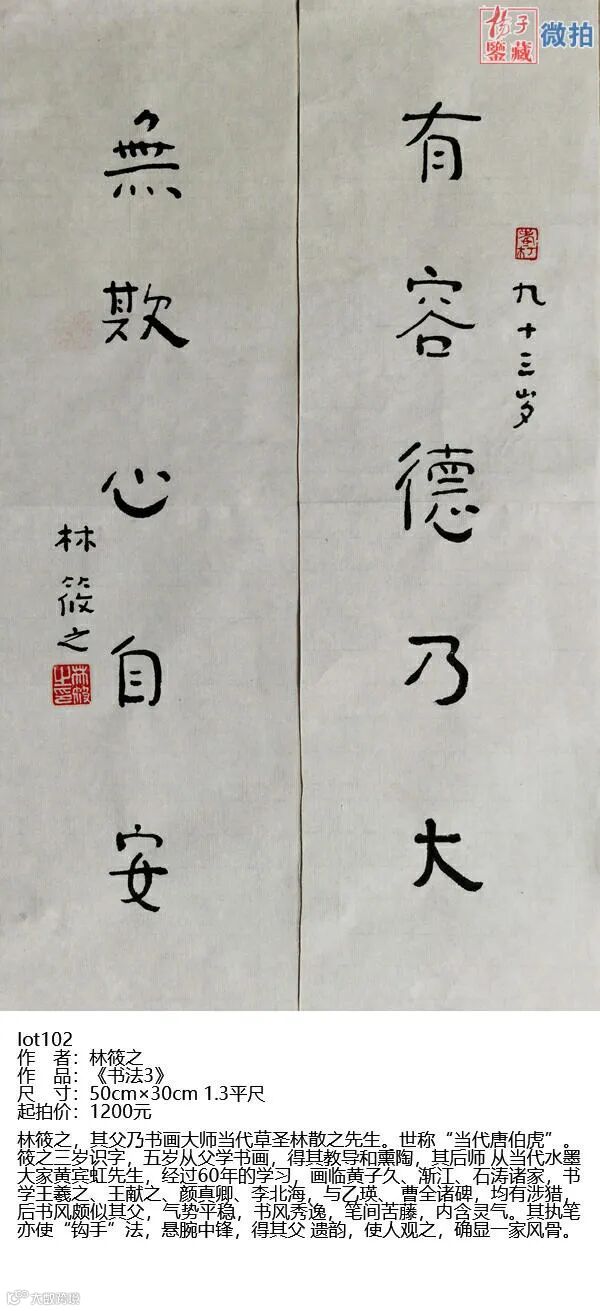 杨子
鉴藏
微拍
有容德乃大
九十三岁
無欺心自安
林筱之
lot102
作 者：林筱之
作 品：《书法3》
尺 寸：50cm×30cm 1.3平尺
起拍价：1200元
林筱之，其父乃书画大师当代草圣林散之先生。世称“当代唐伯虎”。
筱之三岁识字，五岁从父学书画，得其教导和熏陶，其后师 从当代水墨
大家黄宾虹先生，经过60年的学习，画临黄子久、渐江、石涛诸家，书
学王羲之、王献之、颜真卿、李北海，与乙瑛、曹全诸碑，均有涉猎，
后书风颇似其父，气势平稳，书风秀逸，笔间苦藤，内含灵气。其执笔
亦使“钩手”法，悬腕中锋，得其父 遗韵，使人观之，确显一家风骨。
大数跨境